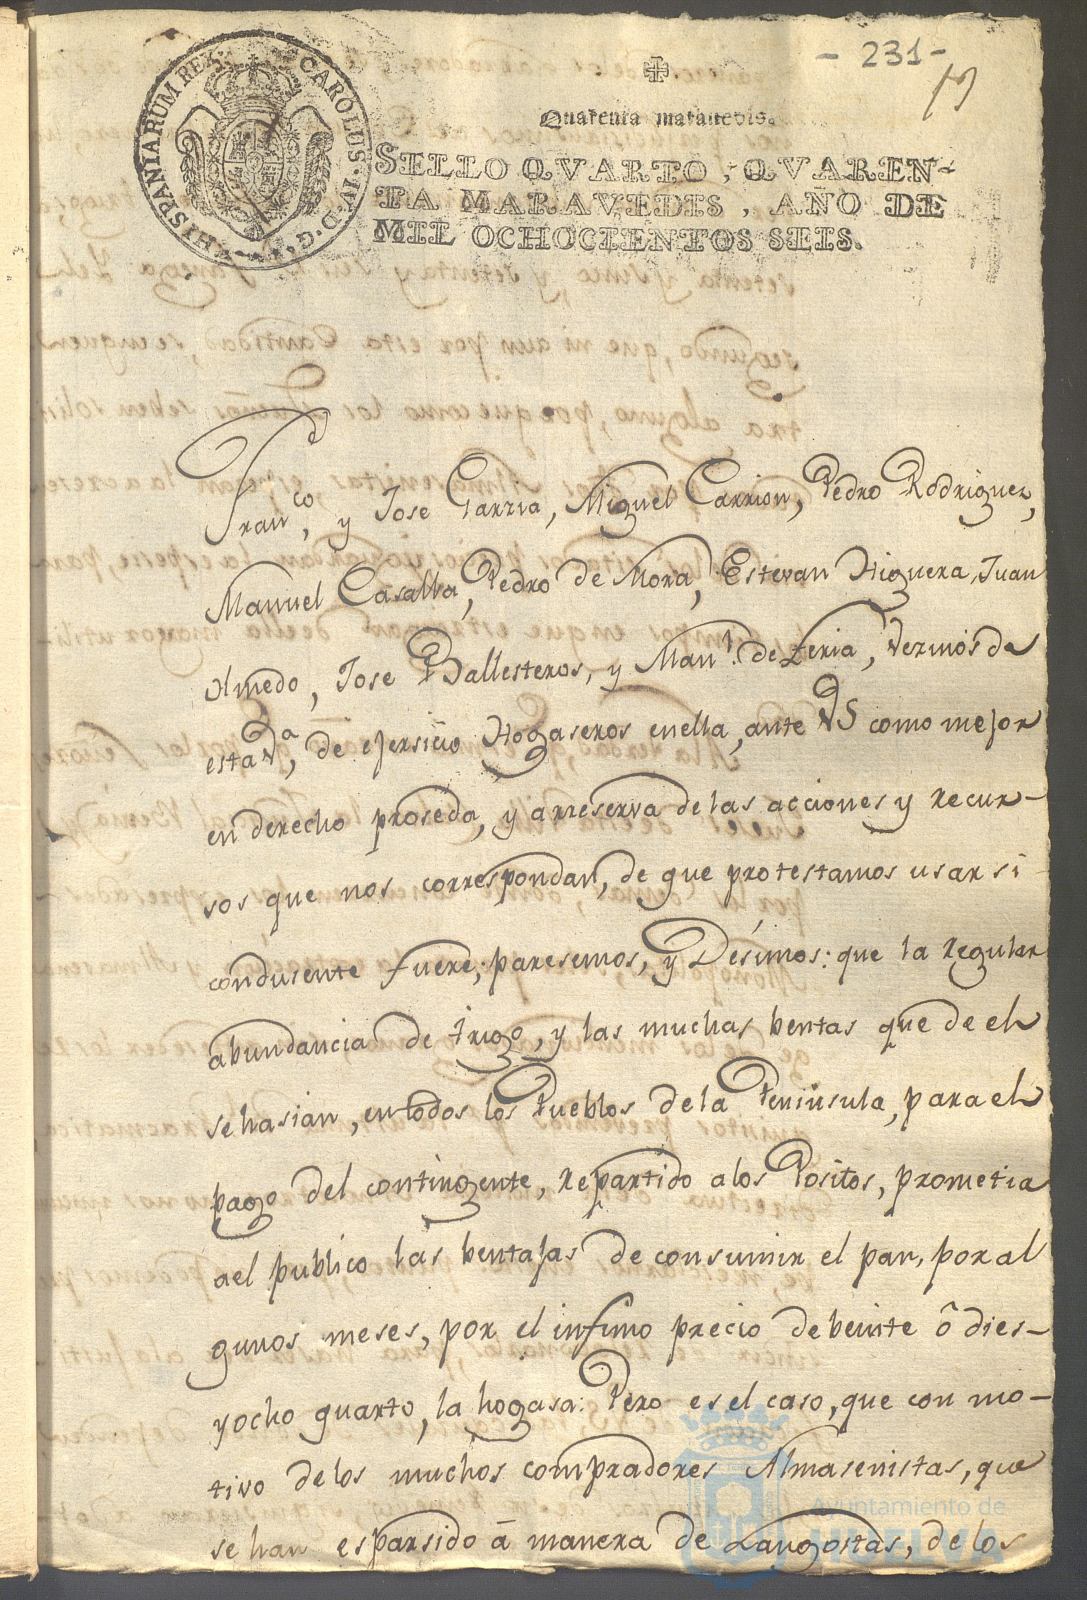 - 231 -
HISPANIARUM REX. CAROLUS. IV. D. G.
Quarenta marauedis.
SELLO QVARTO, QVAREN-
TA MARAVEDIS, AÑO DE
MIL OCHOCIENTOS SEIS.
Franco, y Jose Garzia, Miguel Carrion, Pedro Rodriguez,
Manuel Casalba, Pedro de Mora, Estevan Higuera, Juan
Olmedo, Jose Ballesteros, y Manl. de Feria, Vezinos de
esta Va, de ejersicio Hogaseros enella, ante VS como mejor
en derecho proseda, y arreserva de las acciones y recur-
sos que nos correspondan, de que protestamos usar si
condusente fuere; paresemos, y Désimos: que la regular
abundancia de trigo, y las muchas bentas que de el
se hasian, en todos los Pueblos de la Peninsula, para el
pago del contingente, repartido a los Positos, prometia
ael publico las bentajas de consumir el pan, por al
gunos meses, por el infimo precio de beinte ô dies-
yocho quarto, la hogasa: Pero es el caso, que con mo-
tivo de los muchos compradores Almasenistas, que
se han esparsido â manera de Langostas, de los
Ayuntamiento de
HUELVA